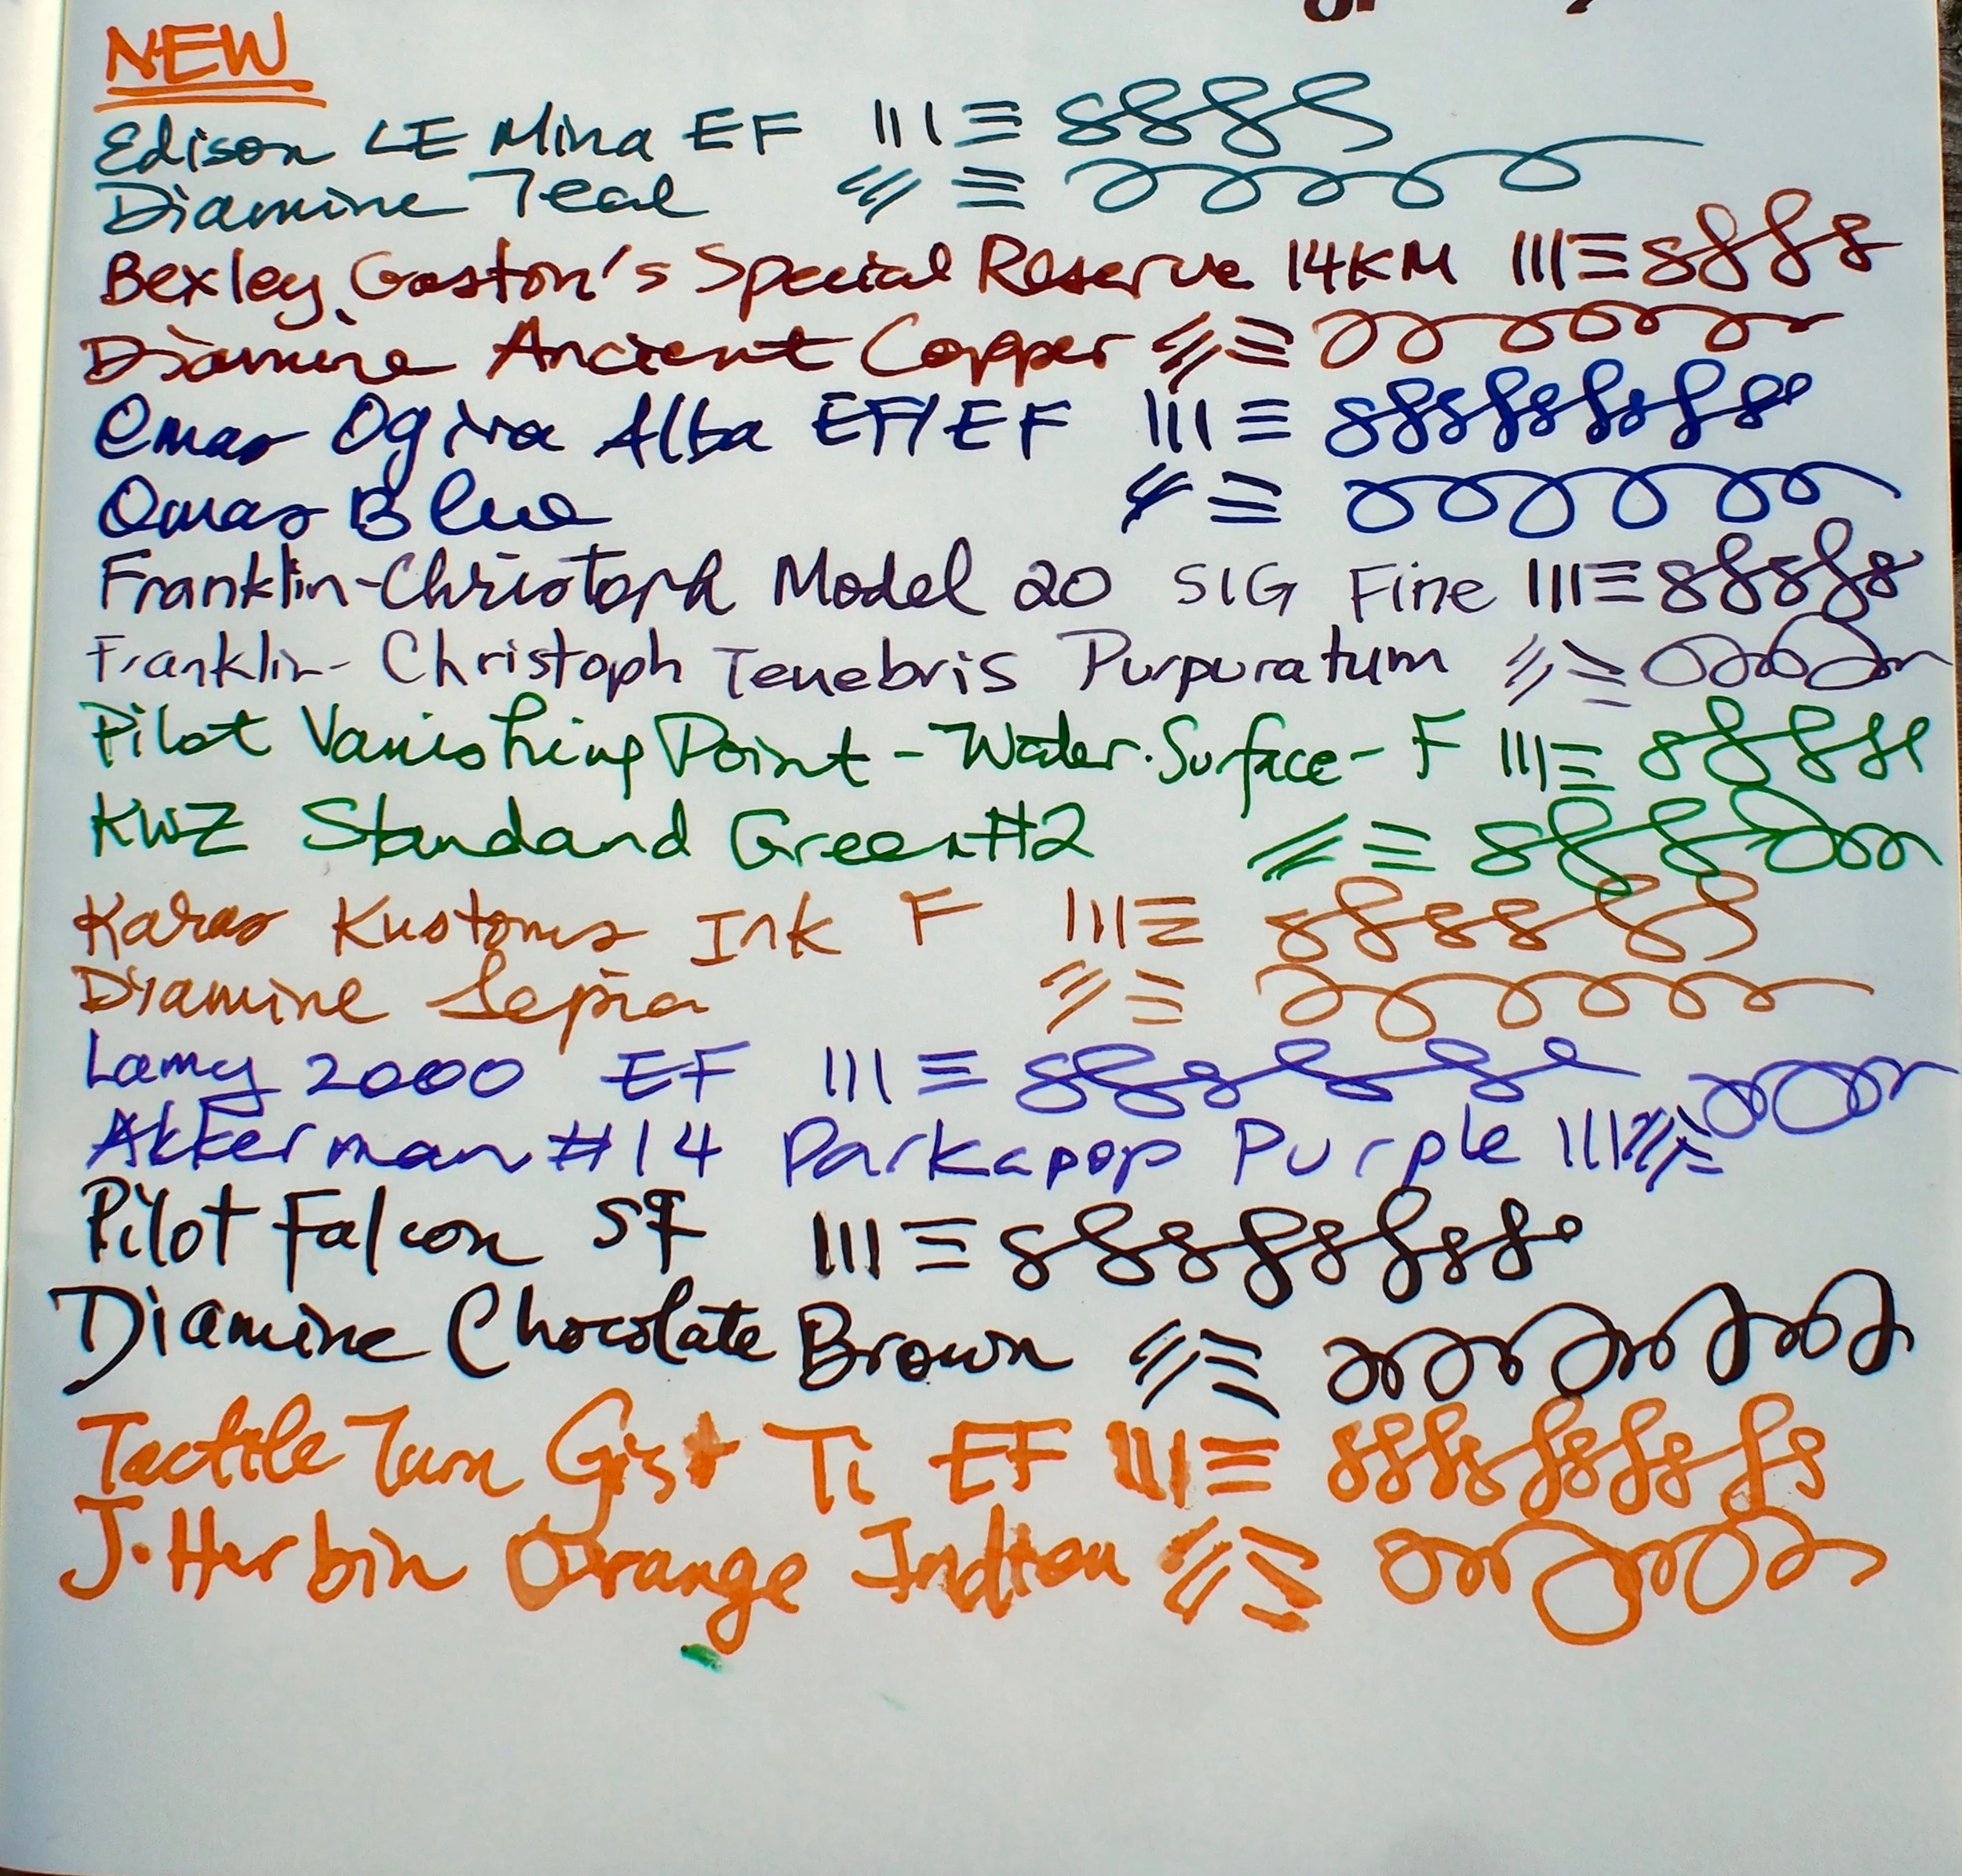 NEW
Edison LE Mina EF
Diamine Teal
Bexley Gaston's Special Reserve 14KM
Diamine Ancient Copper
Omas Ogiva Alba EF/EF
Omas Blue
Franklin-Christoph Model 20 SIG Fine
Franklin-Christoph Tenebris Purpuratum
Pilot Vanishing Point - Water Surface - F
KWZ Standard Green #2
Karas Kustoms Ink F
Diamine Sepia
Lamy 2000 EF
Akkerman #14 Parkapop Purple
Pilot Falcon SF
Diamine Chocolate Brown
Tactile Turn Gist Ti EF
J. Herbin Orange Indien